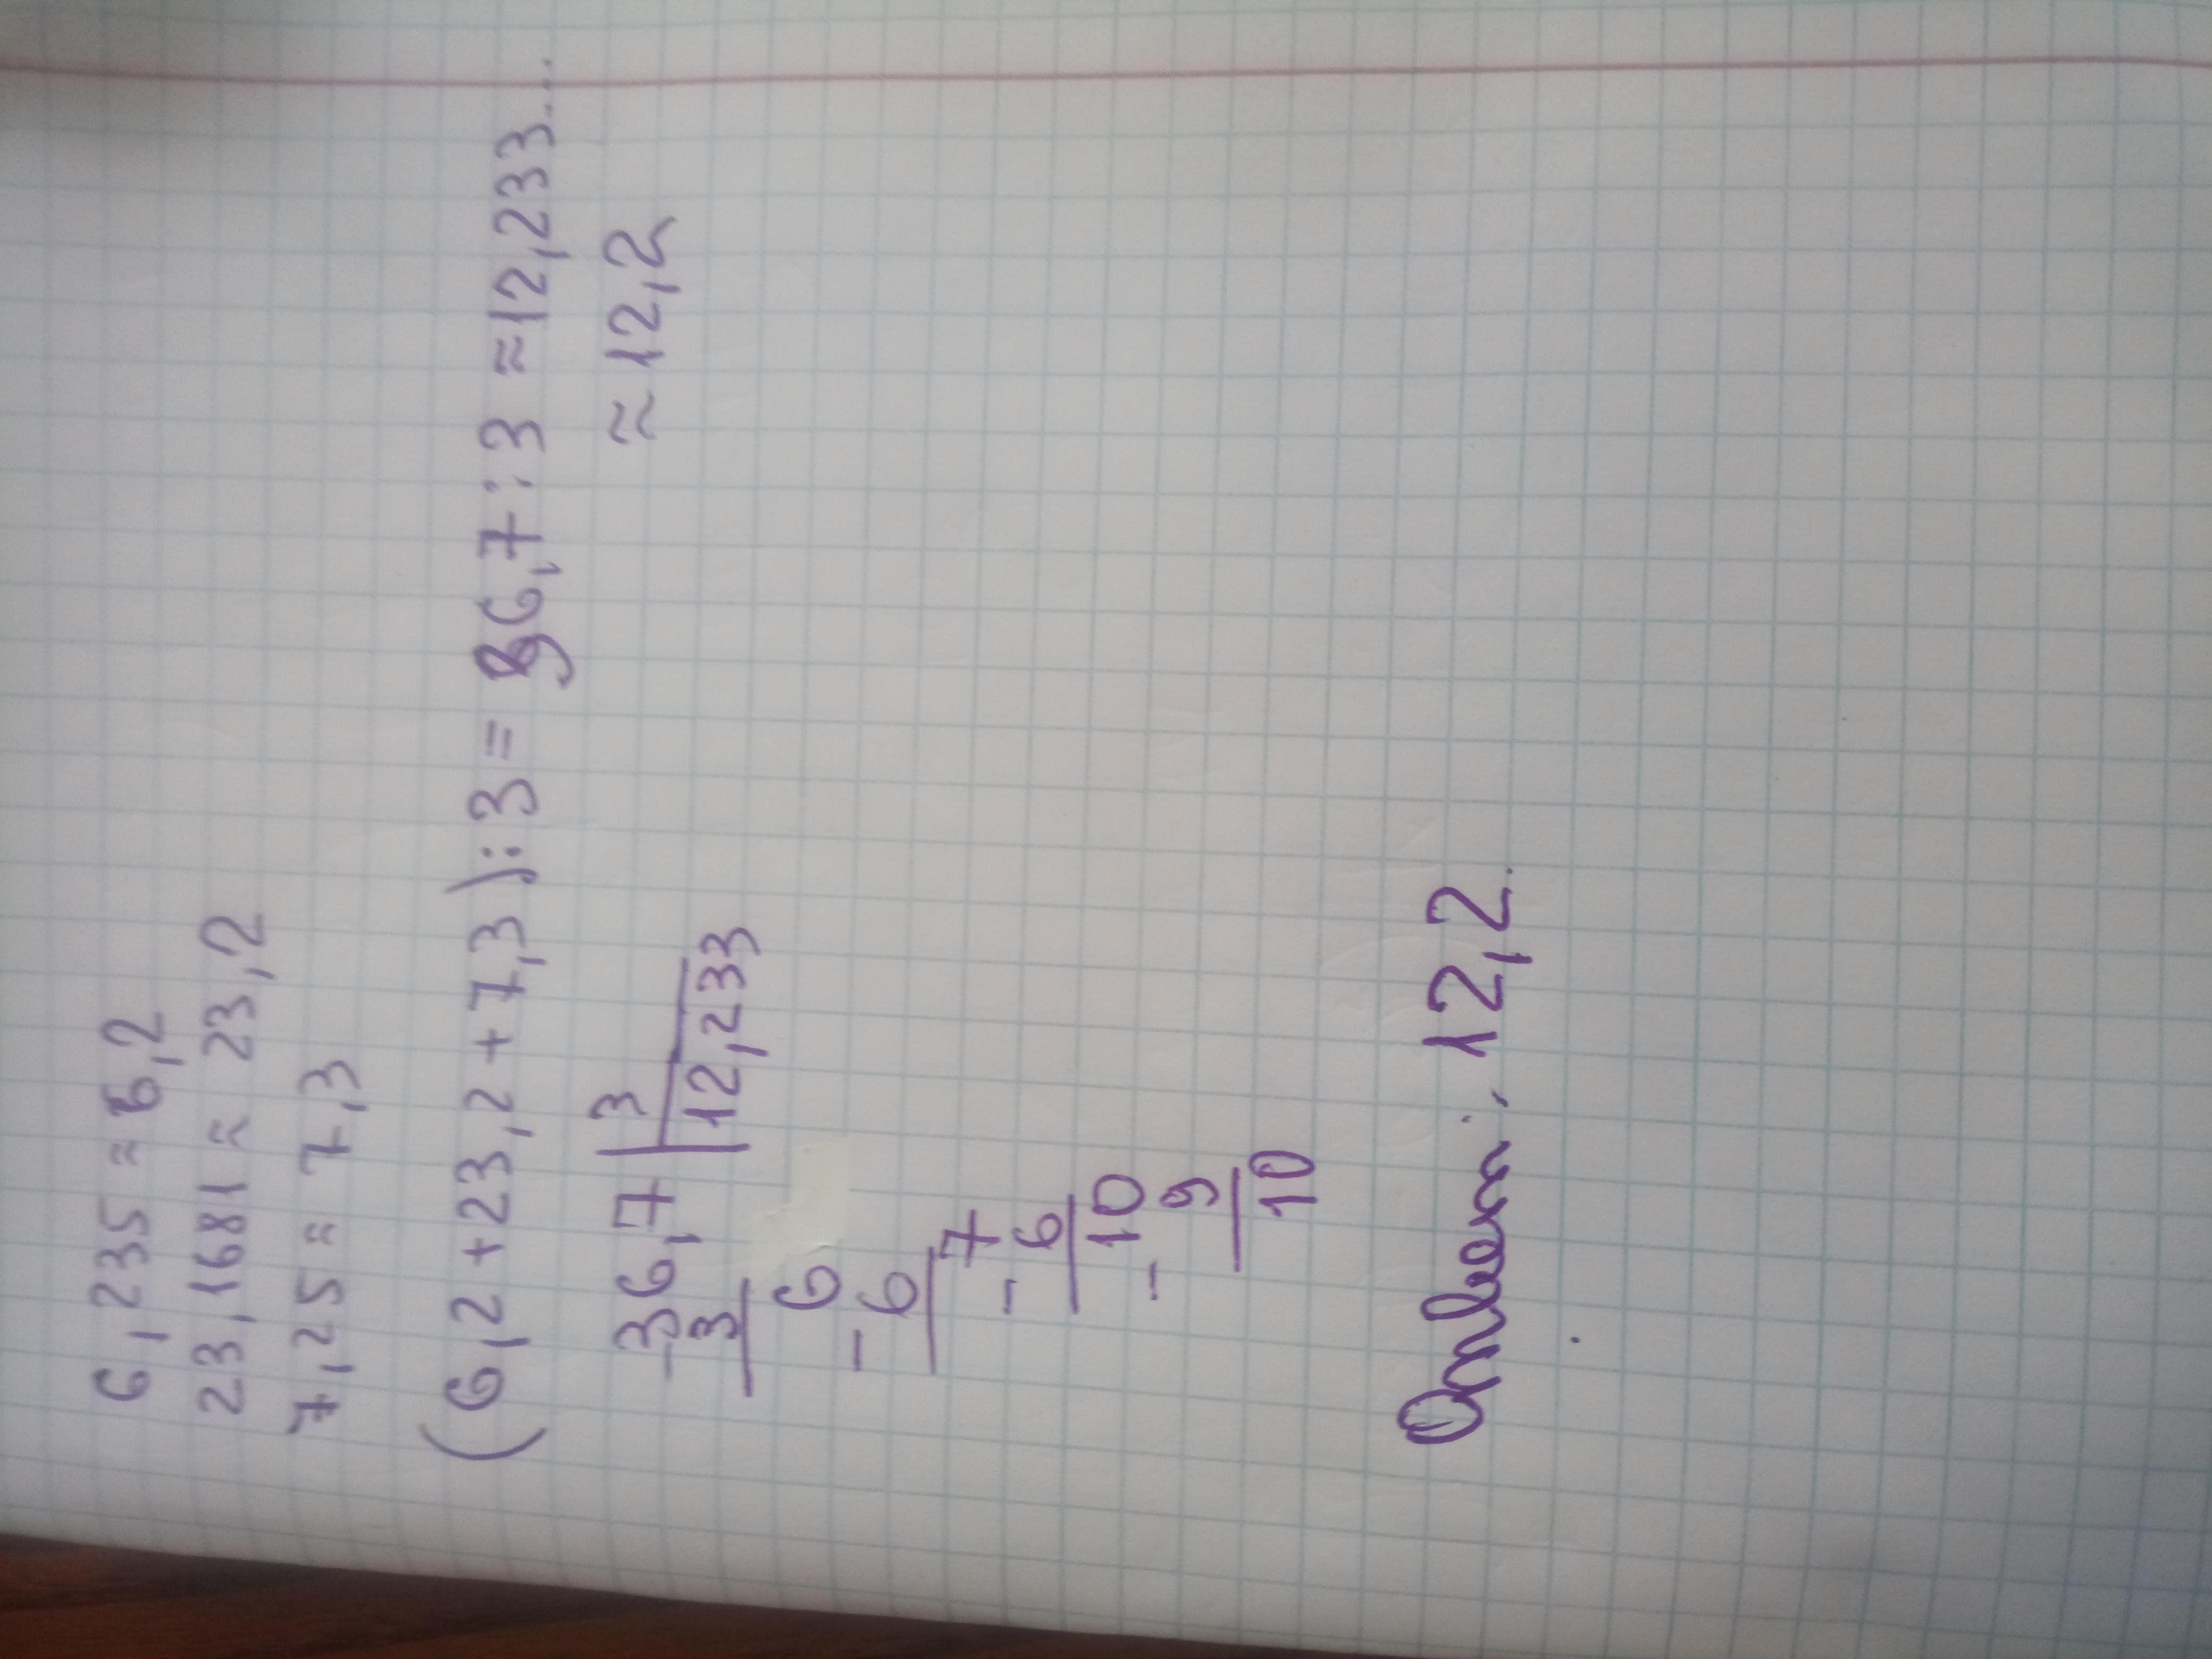 6,235 ≈ 6,2
23,1681 ≈ 23,2
7,25 ≈ 7,3
(6,2+23,2+7,3):3=36,7:3≈12,233...
≈12,2
-36,7|3
3 12,233
6
-6
7
-6
10
-9
10
Ответ: 12,2.